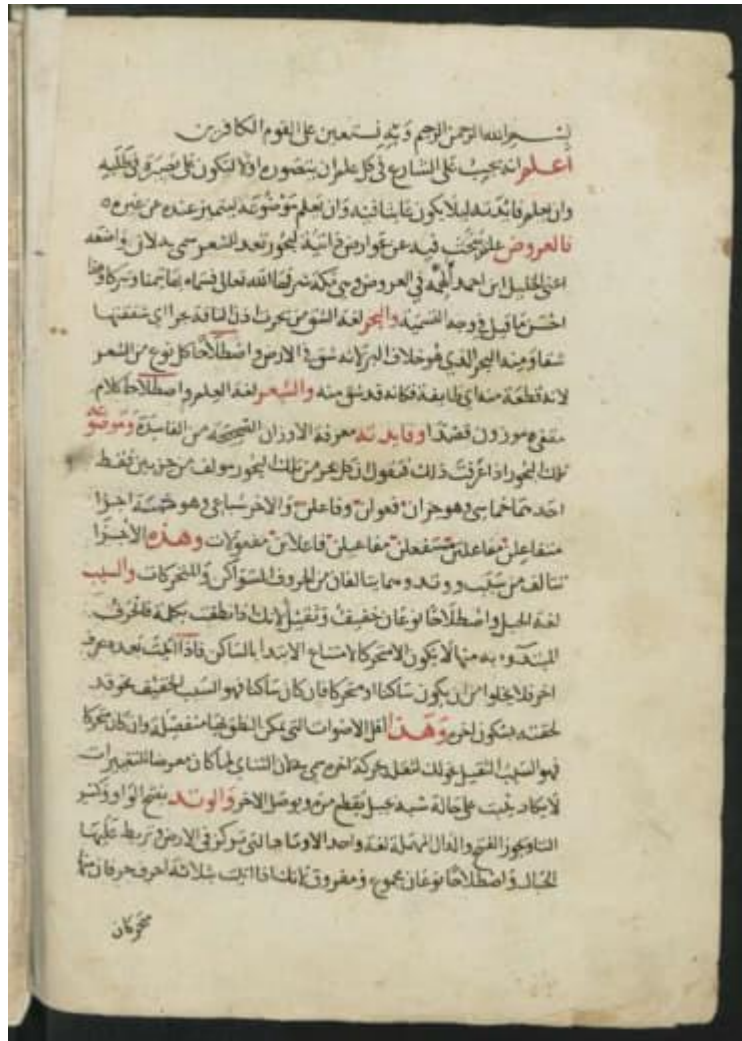 بسم الله الرحمن الرحيم وبه نستعين على القوم الكافرين
اعلم انه يجب على الشارع في كل علم ان يتصوره اولا ليكون على بصيرة في طلبه
وان يعلم فائدته ليلا يكون عابثا فيه وان يعلم موضوعه ليتميز عنده عن غيره
فالعروض علم يبحث فيه عن عوارض ذاتية لبحور تعد للشعر سمي بذلك لان واضعه
اعني الخليل ابن احمد الهمه في العروض وهي مكة شرفها الله تعالى فسماه بها تيمنا وتبركا وهذا
احسن ما قيل في وجه التسمية والبحر لغة الشق من بحرت اذن الناقة بحرا اي شققتها
شقا ومنه البحر الذي هو خلاف البر لانه شق في الارض واصطلاحا كل نوع من الشعر
لانه قطعة منه اي طايفة فكانه قد شق منه والشعر لغة العلم واصطلاحا كلام
مقفى موزون قصدا وفايدته معرفة الاوزان الصحيحة من الفاسدة وموضوعه
تلك البحور اذا عرفت ذلك فنقول ان كل بحر من تلك البحور مولف من جزين فقط
احدهما خماسي وهو جزان فعولن وفاعلن والاخر سباعي وهو خمسة اجزا
متفاعلن مفاعلتن مستفعلن مفاعيلن فاعلاتن مفعولات وهذه الاجزا
تتالف من سبب ووتد وهما يتالفان من الحروف السواكن والمتحركات والسبب
لغة الحبل واصطلاحا نوعان خفيف وثقيل لانك اذا نطقت بكلمة فالحرف
المبدوء به منها لا يكون الا متحركا لامتناع الابتدا بالساكن فاذا اتيت بعده بحرف
اخر فلا يخلوا من ان يكون ساكنا او متحركا فان كان ساكنا فهو السبب الخفيف نحو قد
لخفته بسكون اخره وهذا اقل الاصوات التي يمكن النطق بها منفصلة وان كان متحركا
فهو السبب الثقيل نحو لك لثقله بحركة اخره سمي هذان الثنائي لما كان معرضا للتغييرات
لا يكاد يثبت على حالة شبه بحبل يقطع مرة ويوصل الاخر والوتد بفتح الواو وكسر
التا ويجوز الفتح والدال المهملة لغة واحد الاوتاد التي تركز في الارض وتربط عليها
الحبال واصطلاحا نوعان مجموع ومفروق لانك اذا اتيت بثلاثة احرف حرفان منها
متحركان